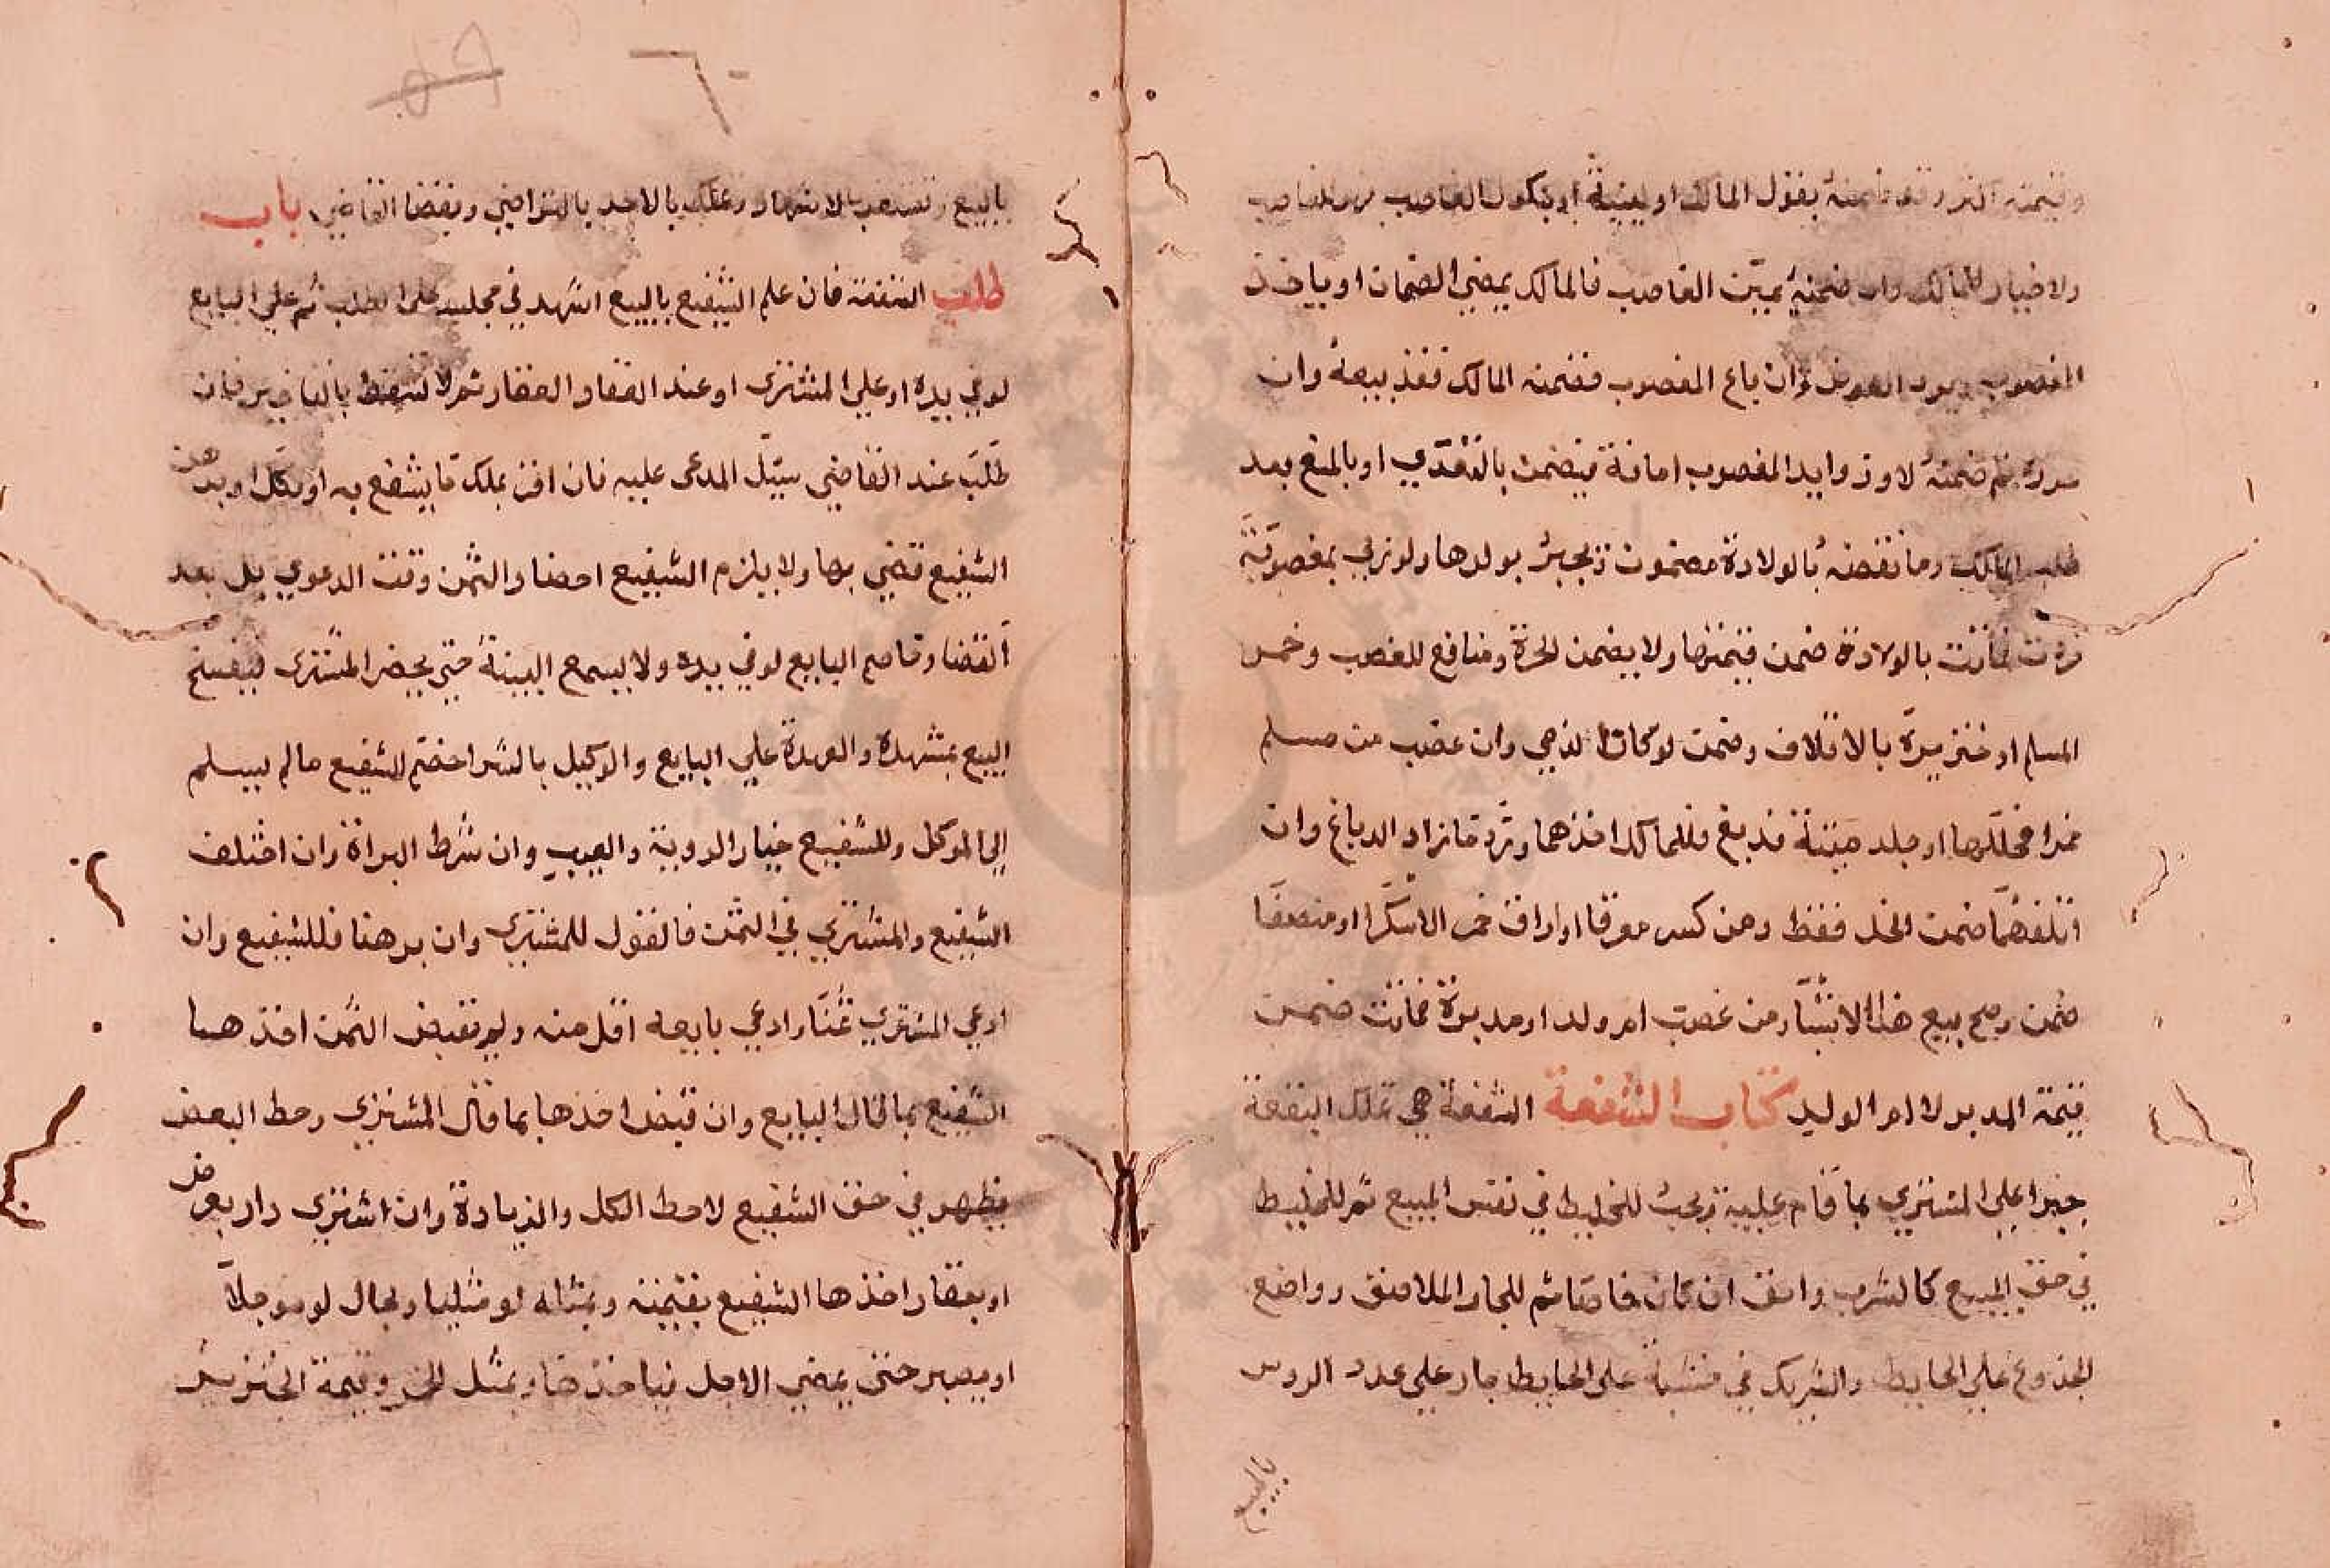 وقيمته اكثر وقد ضمنه بقول المالك او ببينة او بنكول الغاصب فهو للغاصب
ولا خيار للمالك وان ضمنه بيمين الغاصب فالمالك يمضي الضمان او ياخذ
المغصوب ويرد العوض وان باع المغصوب فضمنه المالك نفذ بيعه وان
حرره ثم ضمنه لا وزوايد المغصوب امانة فيضمن بالتعدي او بالمنع بعد
طلب المالك وما نقص بالولادة مضمون ويجبر بولدها ولو زني بمغصوبة
فردت فماتت بالولادة ضمن قيمتها ولا يضمن الحرة ومنافع الغصب وخمر
المسلم او خنزيره بالاتلاف وضمن لو كانا لذمي وان غصب من مسلم
خمرا فخللها او جلد ميتة فدبغ فللمالك اخذهما ورد ما زاد الدباغ وان
اتلفهما ضمن الخل فقط ومن كسر معزفا او اراق خمر الاسكرا او منصفا
ضمن وصح بيع هذا الاشيا ومن غصب ام ولد او مدبرة فماتت ضمن
قيمة المدبر لا ام الوليد كتاب الشفعة الشفعة هي تملك البقعة
جبرا على المشتري بما قام عليه وتجب للخليط في نفس المبيع ثم للخليط
في حق المبيع كالشرب وا ان كان خاصا ثم للجار الملاصق وواضع
الجذوع علي الحايط والشريك في خشبة على الحايط جار علي عدد الروس
بالبيع
بالبيع وتستقر بالاشهاد وتملك بالاخذ بالتراضي وبقضا القاضي باب
طلب الشفعة فان علم الشفيع بالبيع اشهد في مجلسه على الطلب ثم علي البايع
لو في يده او علي المشتري او عند العقار ثم لا تسقط بالتاخير فان
طلب عند القاضي سيل المدعى عليه فان اقر بملك ما يشفع به او نكل او برهن
الشفيع قضي بها ولا يلزم الشفيع احضار الثمن وقت الدعوي بل بعد
القضا وخاصم البايع لو في يده ولا يسمع البينة حتي يحضر المشتري فيفسخ
البيع بمشهده والعهدة علي البايع والوكيل بالشرا خصم للشفيع مالم يسلم
الي الموكل وللشفيع خيار الروية والعيب وان شرط البراة وان اختلف
الشفيع والمشتري في الثمن فالقول للمشتري وان برهنا فللشفيع وان
ادعي المشتري ثمنا وادعي بايعه اقل منه ولم يقبض الثمن اخذها
الشفيع بما قال البايع وان قبض اخذها بما قال المشتري وحط البعض
يظهر في حق الشفيع لا حط الكل والزيادة وان اشتري دار بعرض
او بعقار اخذها الشفيع بقيمته وبمثله لو مثليا وبحال لو موجلا
او يصبر حتى يمضي الاجل فياخذها وبمثل الخمر وقيمة الخنزير